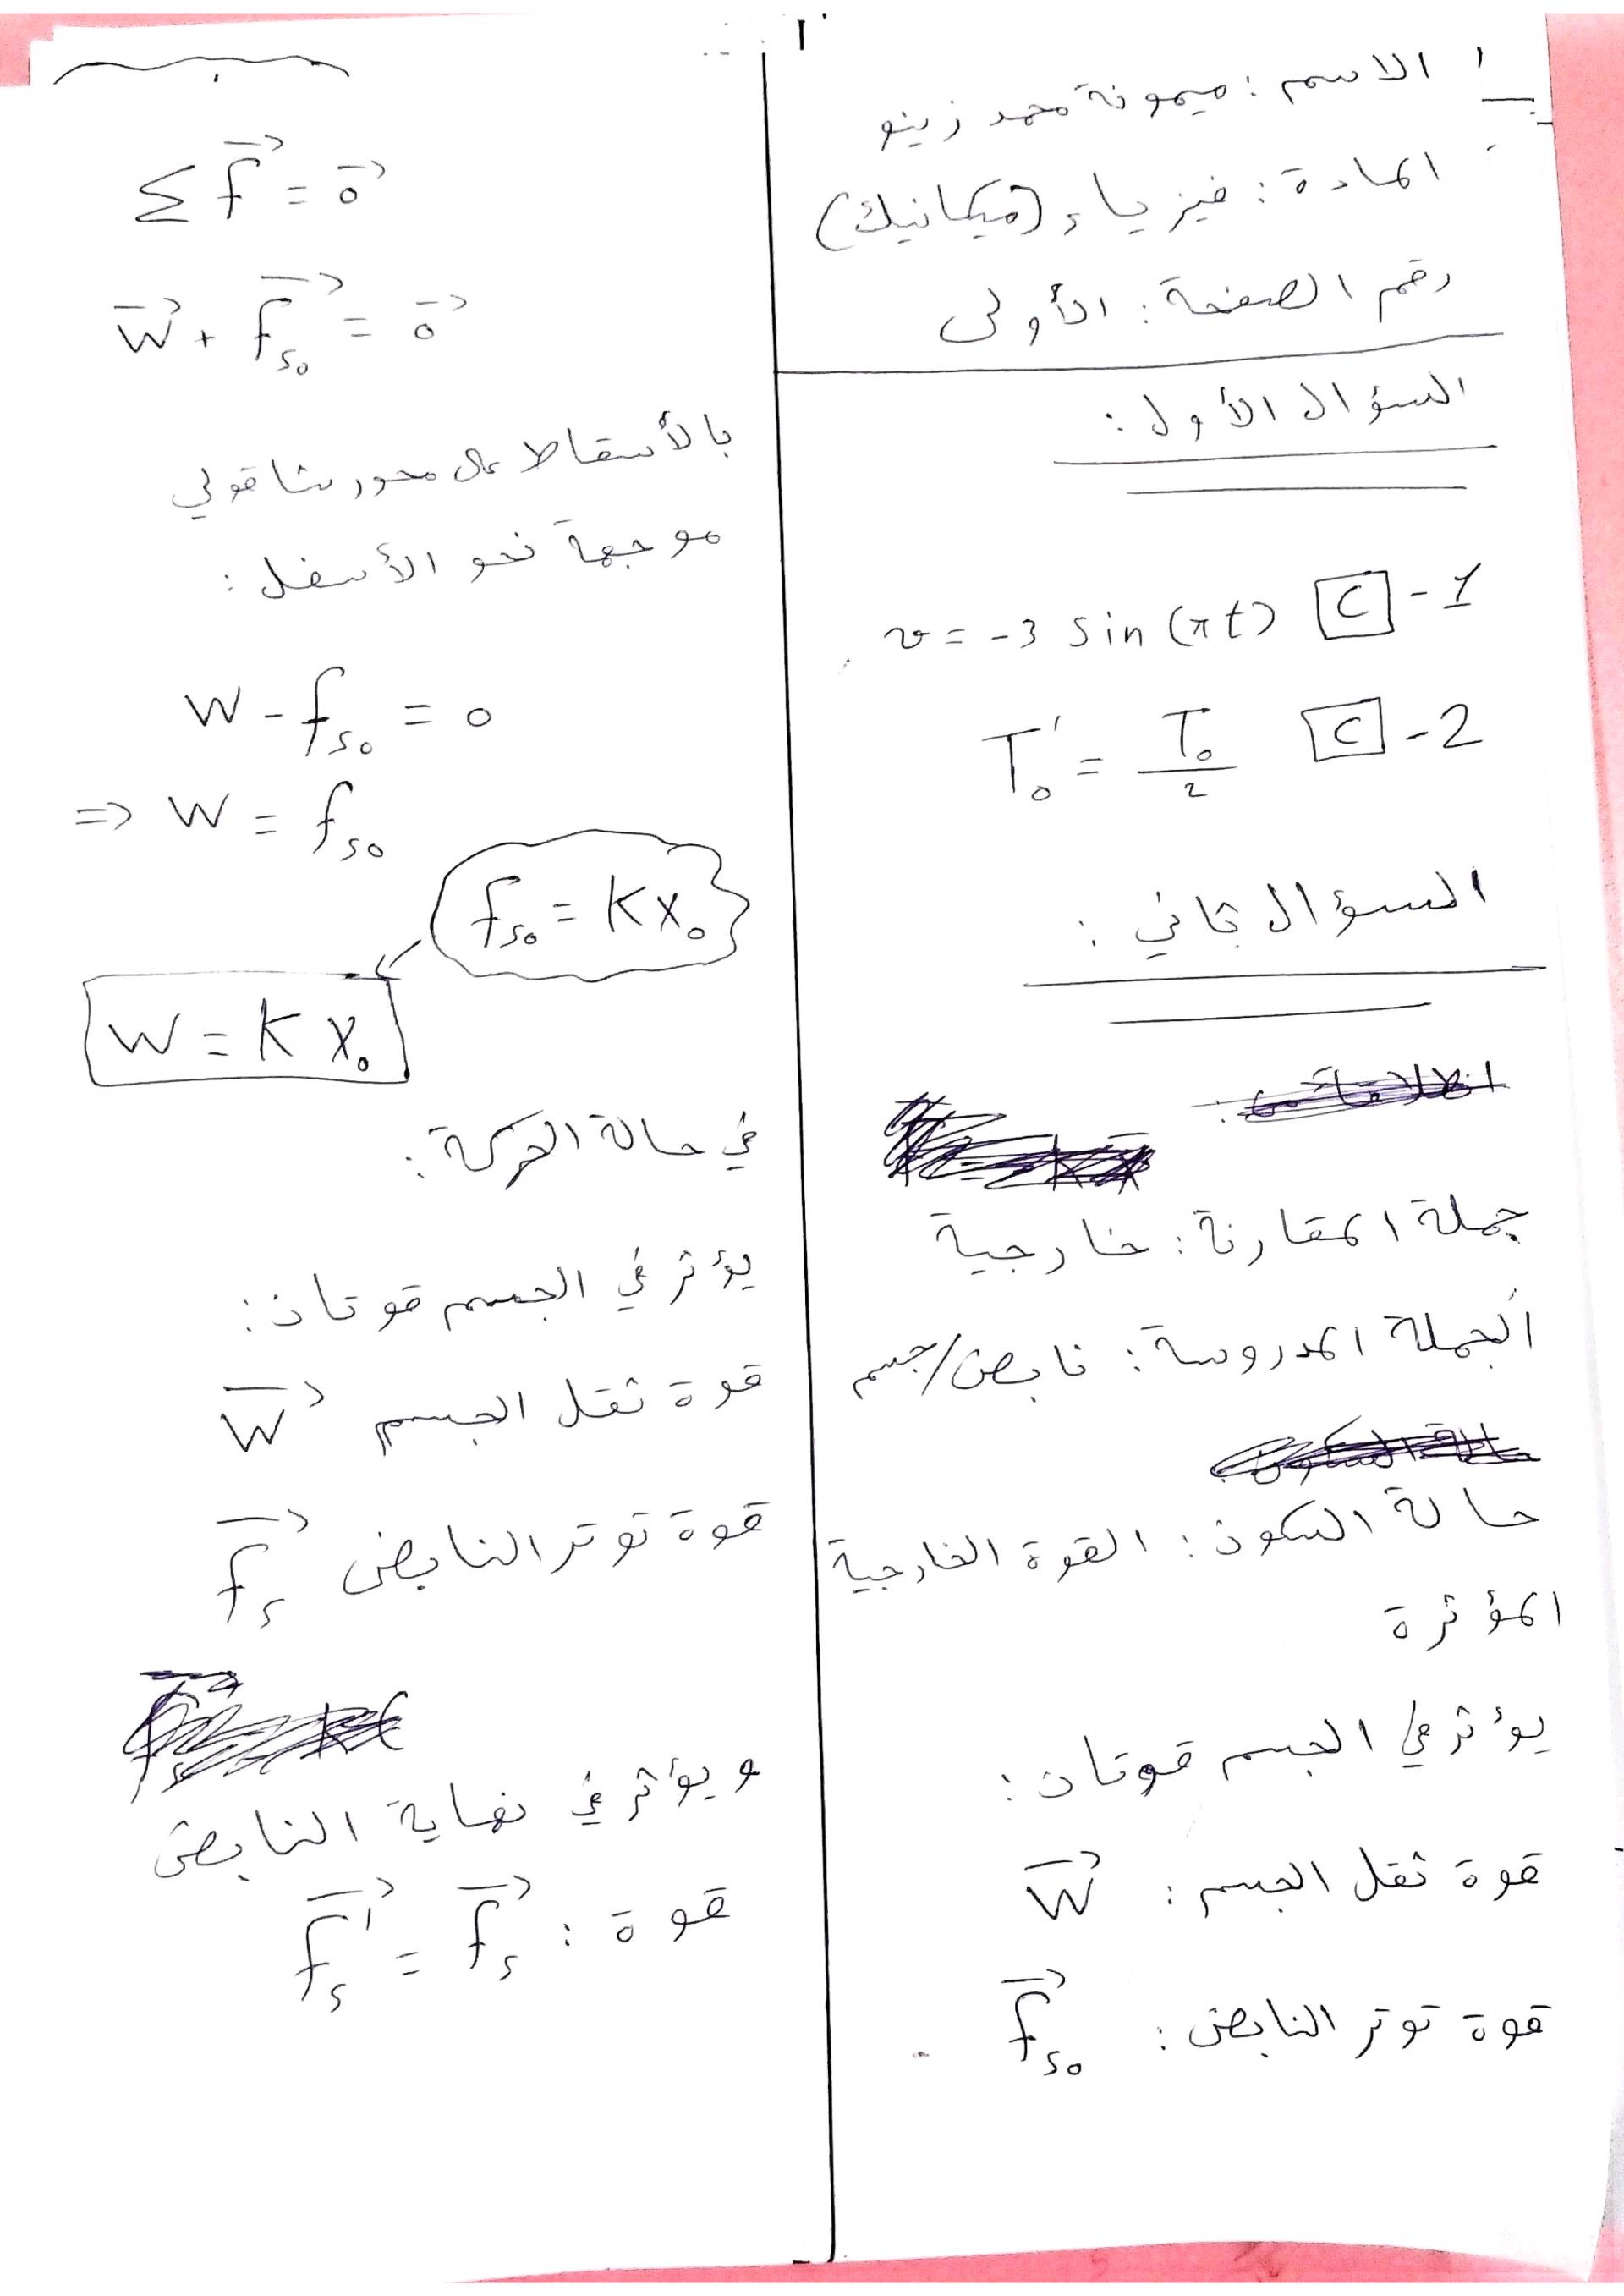 الاسم : ميمونة محمد زينو
المادة : فيزياء (ميكانيك)
رقم الصفحة : الأولى
السؤال الأول :
1 - C v = -3 sin (πt)
2 - C T₀' = T₀/2
السؤال ثاني :
جملة المقارنة : خارجية
الجملة المدروسة : نابض/جسم
حالة السكون : القوة الخارجية
المؤثرة
يؤثر في الجسم قوتان :
قوة ثقل الجسم : W⃗
قوة توتر النابض : f⃗ₛ₀
Σ f⃗ = 0⃗
W⃗ + f⃗ₛ₀ = 0⃗
بالأسقاط على محور شاقولي
موجهة نحو الأسفل :
W - fₛ₀ = 0
=> W = fₛ₀
fₛ₀ = K x₀
W = K x₀
في حالة الحركة :
يؤثر في الجسم قوتان :
قوة ثقل الجسم W⃗
قوة توتر النابض f⃗ₛ
و يؤثر في نهاية النابض
قوة : f⃗ₛ' = f⃗ₛ